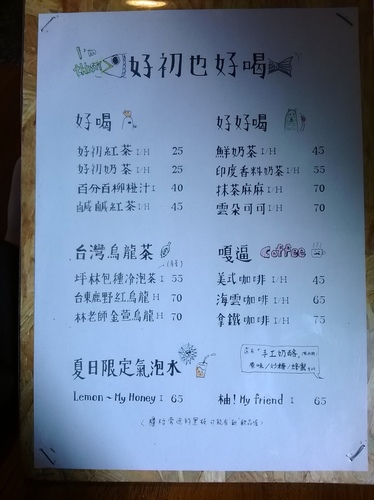 I'm
好初也好喝
好喝
好初紅茶 I/H 25
好初奶茶 I/H 25
百分百柳橙汁 I 40
鹹鹹紅茶 I/H 45
好好喝
鮮奶茶 I/H 45
印度香料奶茶 I/H 55
抹茶麻麻 I/H 70
雲朵可可 I/H 70
台灣烏龍茶
坪林包種冷泡茶 I 55
台東鹿野紅烏龍 H 70
林老師金萱烏龍 H 70
嘎逼 Coffee
美式咖啡 I/H 45
海雲咖啡 I/H 65
拿鐵咖啡 I/H 75
夏日限定氣泡水
Lemon ~ My Honey I 65
「手工奶酪」
原味/炒糖/蜂蜜
柚! My friend I 65